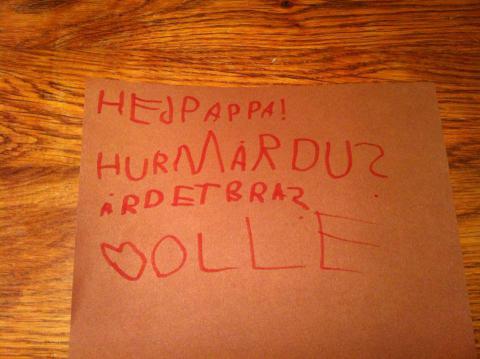 HEJPAPPA!
HURMÅRDU?
ÄRDETBRA?
♥OLLE